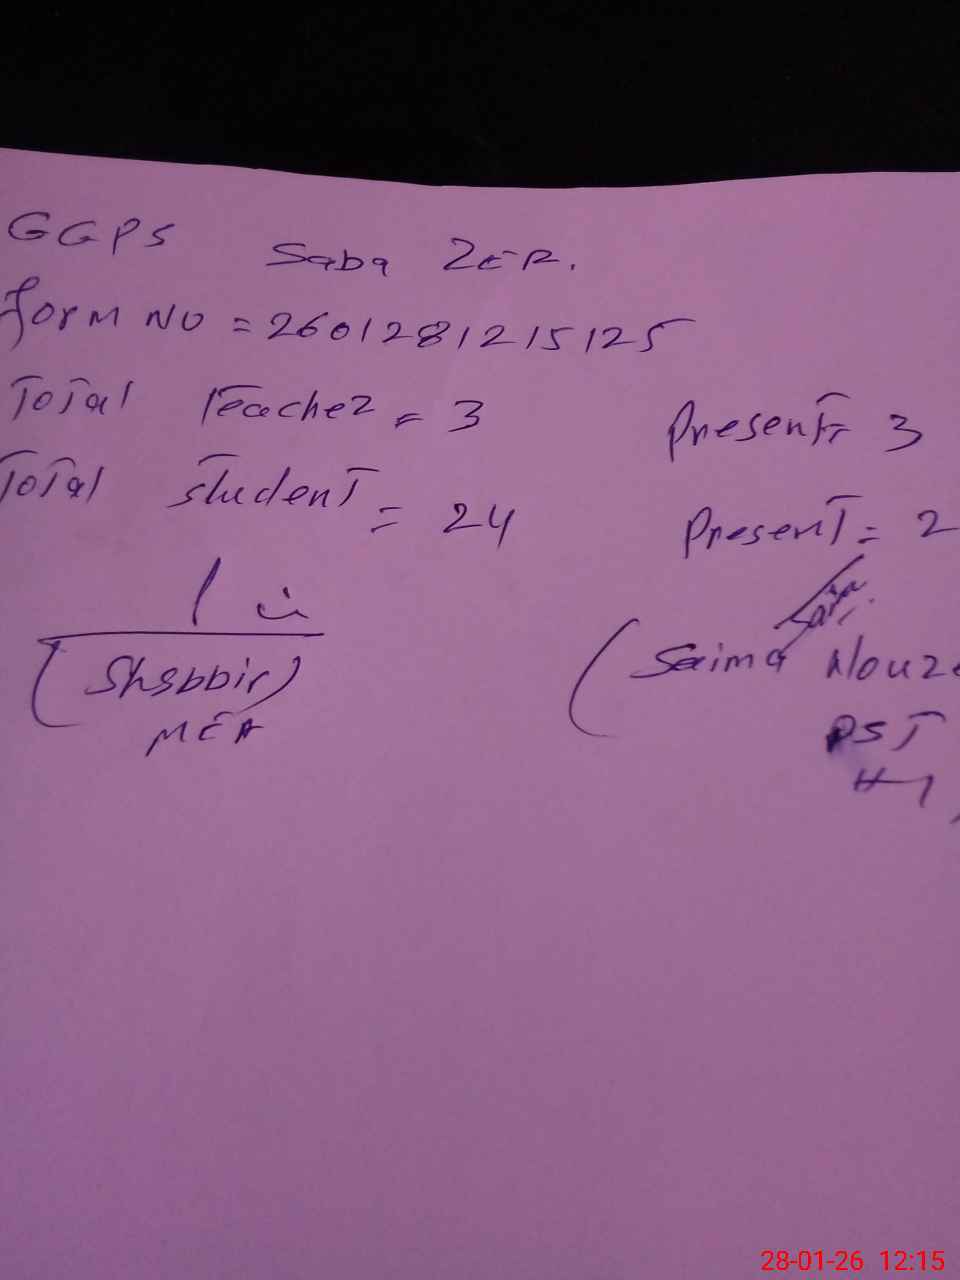 GGPS Saba ZER.
form NO = 2601281215125
Total Teacher = 3 Present = 3
Total student = 24 Present = 2
(Shabbir) (Saima Nouze
MEA PST
28-01-26 12:15